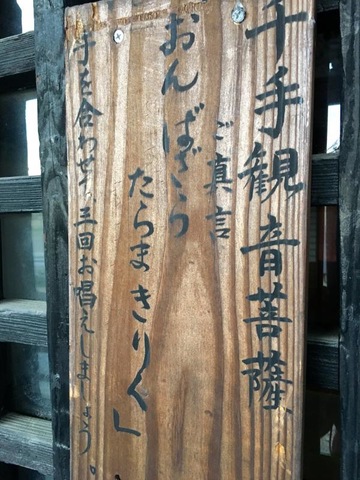 千手観音菩薩、
ご真言
おんばざら
たらまきりく」
手を合わせて、三回お唱えしましょう。